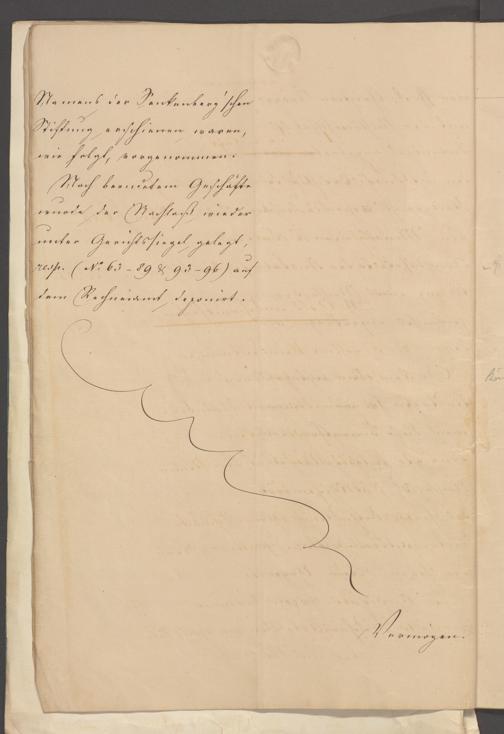 Namens der Senkenberg'schen
Stiftung erschienen waren,
wie folgt, vorgenommen.
Nach beendetem Geschäfte
wurde der Nachlaß wieder
unter Gerichtssiegel gelegt,
resp. (No. 63-89 & 93-96) auf
dem Rechneiamt deponirt.
Vermögen.